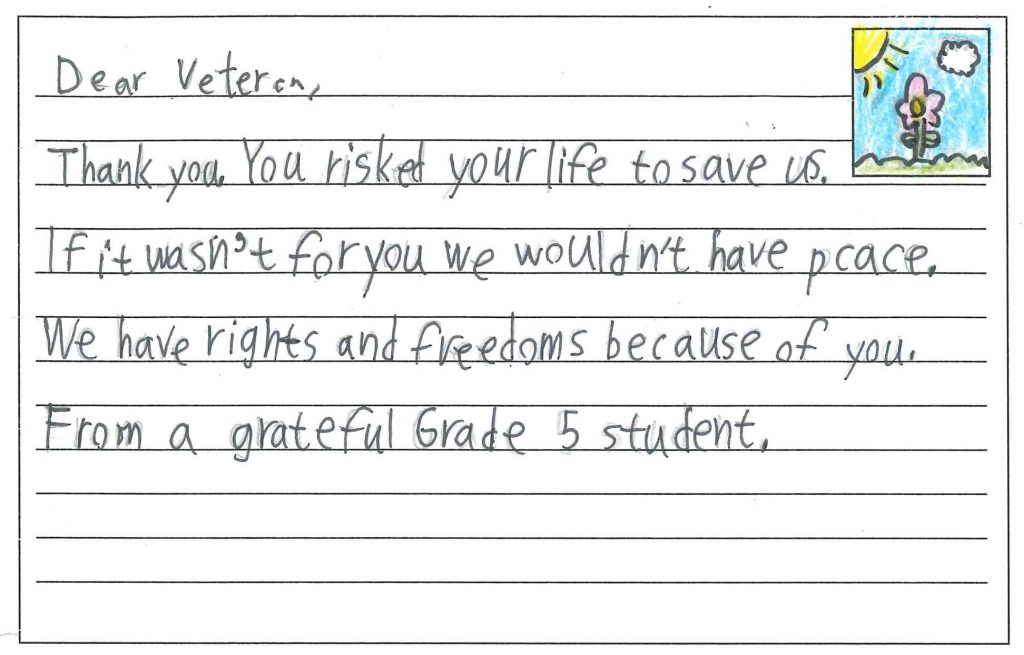 Dear Veteran,
Thank you. You risked your life to save us.
If it wasn't for you we wouldn't have peace.
We have rights and freedoms because of you.
From a grateful Grade 5 student.